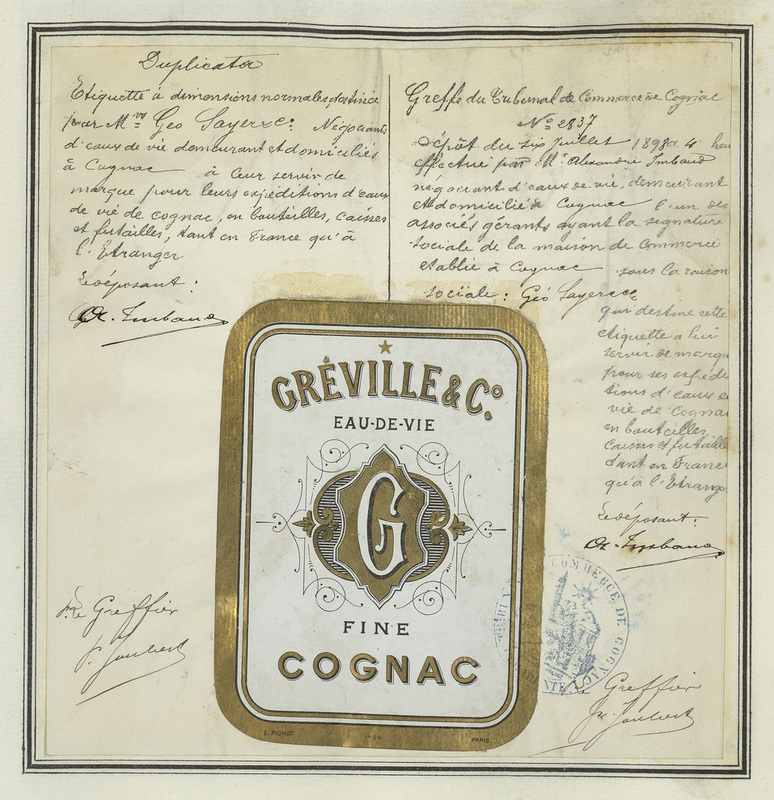 Duplicata
Etiquette à dimensions normales destinée
par Mrs Geo Sayer & Cie Négociants
d'eaux de vie demeurant et domiciliés
à Cognac à leur servir de
marque pour leurs expéditions d'eaux
de vie de cognac, en bouteilles, caisses
et futailles, tant en France qu'à
l'Etranger
Le déposant :
A. Imbaud
Greffe du Tribunal de Commerce de Cognac
No 2837
Dépôt du six juillet 1898 à 4 heu
effectué par Mr Alexandre Imbaud
négociant d'eaux de vie, demeurant
et domicilié à Cognac l'un des
associés gérants ayant la signature
sociale de la maison de Commerce
établie à Cognac sous la raison
sociale : Géo Sayer & Cie
qui destine cette
etiquette à lui
servir de marque
pour ses expédi
tions d'eaux de
vie de cognac
en bouteilles,
caisses et futaille
tant en France
qu'à l'Etranger
Le déposant :
A. Imbaud
GRÉVILLE & Co.
EAU-DE-VIE
G
FINE
COGNAC
PARIS
COMMERCE DE COGNAC
Le Greffier
Joubert
Le Greffier
Joubert